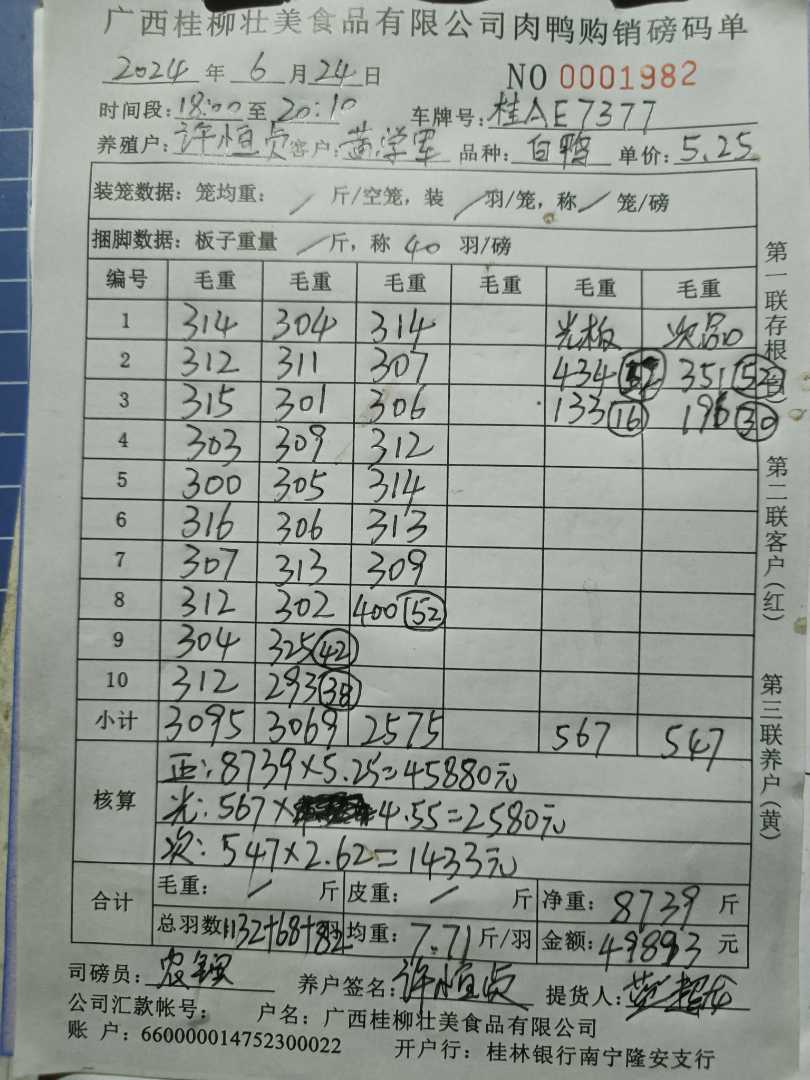 广西桂柳壮美食品有限公司肉鸭购销磅码单
2024 年 6 月 24 日 NO 0001982
时间段: 18:00 至 20:10 车牌号: 桂AE7377
养殖户: 许恒贞 客户: 黄学军 品种: 白鸭 单价: 5.25
装笼数据: 笼均重: / 斤/空笼, 装 / 羽/笼, 称 / 笼/磅
捆脚数据: 板子重量 / 斤, 称 40 羽/磅
编号 毛重 毛重 毛重 毛重 毛重 毛重
1 314 304 314 光板 次品
2 312 311 307 434 52 351 52
3 315 301 306 133 16 196 30
4 303 309 312
5 300 305 314
6 316 306 313
7 307 313 309
8 312 302 400 52
9 304 325 42
10 312 293 38
小计 3095 3069 2575 567 547
核算
正: 8739×5.25=45880元
光: 567×4.55=2580元
次: 547×2.62=1433元
合计
毛重: / 斤 皮重: / 斤 净重: 8739 斤
总羽数 1132+68+82 均重: 7.71 斤/羽 金额: 49893 元
司磅员: 养户签名: 许恒贞 提货人:
公司汇款帐号: 户名: 广西桂柳壮美食品有限公司
账 户: 660000014752300022 开户行: 桂林银行南宁隆安支行
第一联存根
第二联客户(红)
第三联养户(黄)